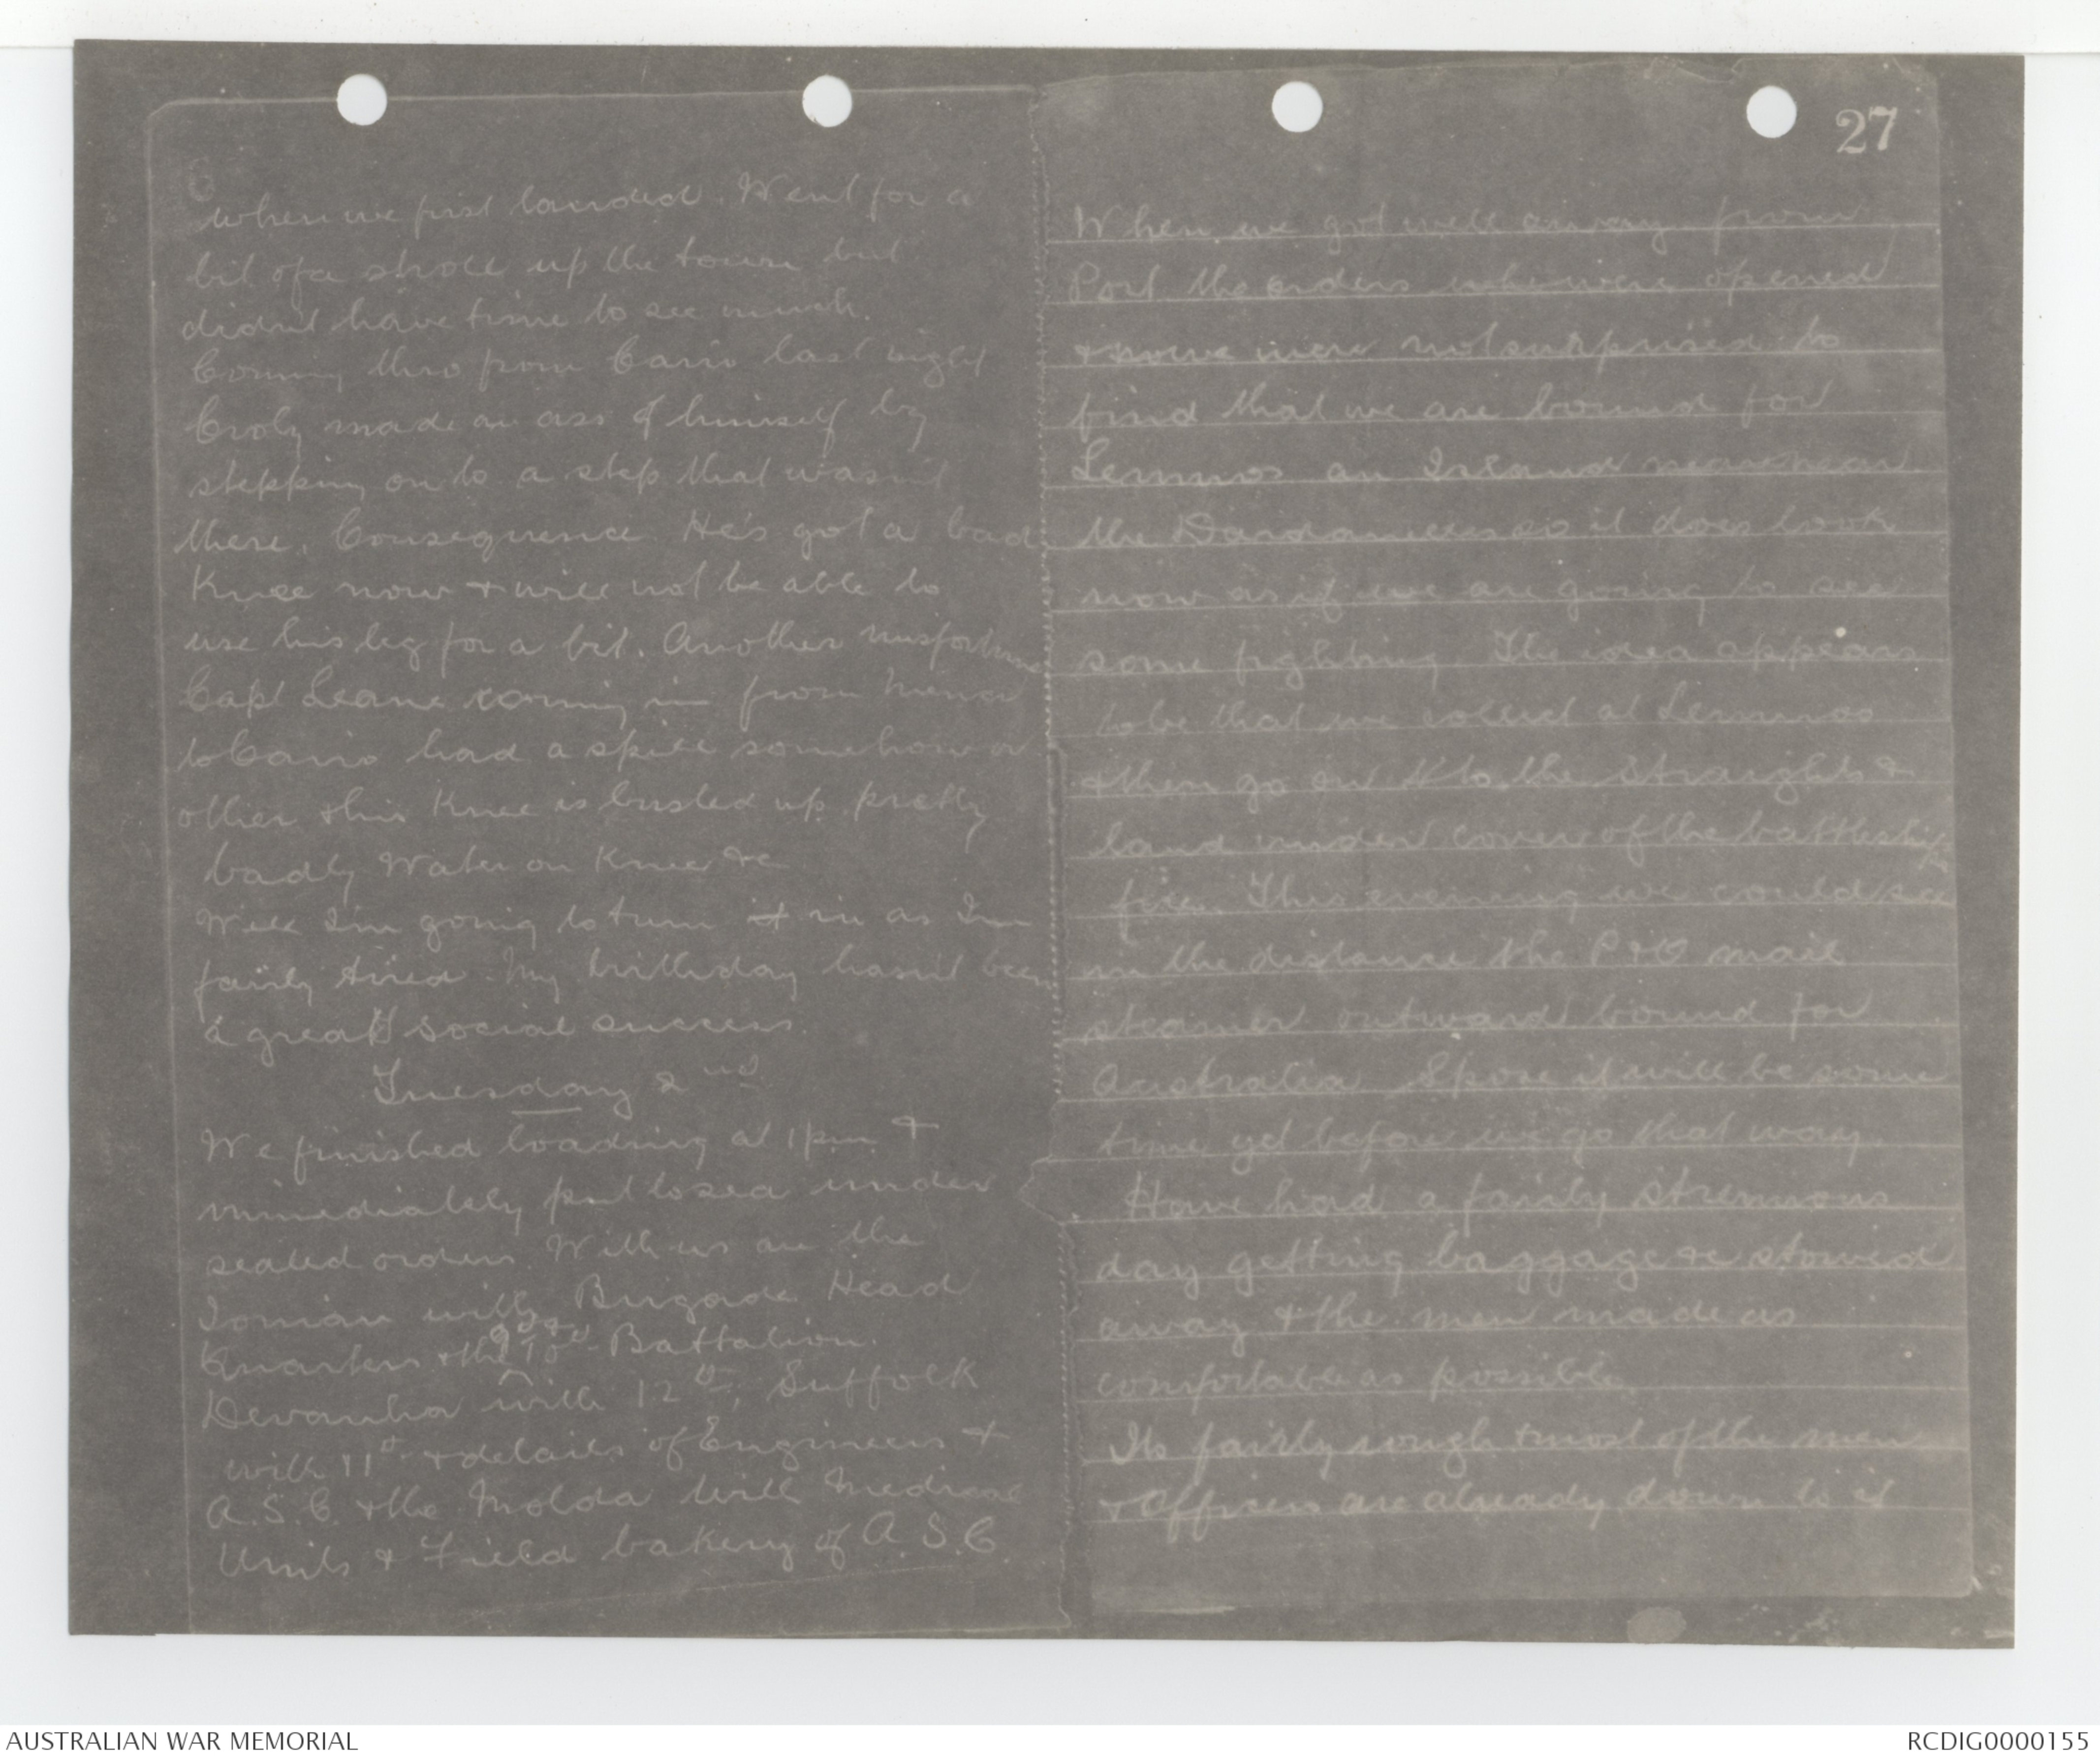 6
when we first landed. Went for a
bit of a stroll up the town but
didn't have time to see much.
Coming thro from Cairo last night
Croly made an ass of himself by
stepping on to a step that wasn't
there. Consequence. He's got a bad
Knee now & will not be able to
use his leg for a bit. Another misfortune
Capt Leane coming in from Mena
to Cairo had a spill somehow or
other & his Knee is busted up pretty
badly Water on Knee &c
Well I'm going to turn it in as I'm
fairly tired. My birthday hasn't been
a great social success.
Tuesday 2nd
We finished loading at 1pm &
immediately put to sea under
sealed orders. With us are the
Ionian with Brigade Head
Quarters & the 10th Battalion.
Devanha with 12th, Suffolk
with 11th & details of Engineers &
A.S.C. & the Molda with Medical
Units & Field bakery of A.S.C.
27
When we got well away from
Port the orders were opened
& were not surprised to
find that we are bound for
Lemnos an Island near
the Dardanelles so it does look
now as if we are going to see
some fighting The idea appears
to be that we collect at Lemnos
& then go on to the Straights &
land under cover of the battleship
fire. This evening we could see
in the distance the P & O mail
steamer outward bound for
Australia Spose it will be some
time yet before we go that way.
Have had a fairly strenuous
day getting baggage &c stowed
away & the men made as
comfortable as possible.
Its fairly rough & most of the men
& Officers are already down to it
AUSTRALIAN WAR MEMORIAL
RCDIG0000155